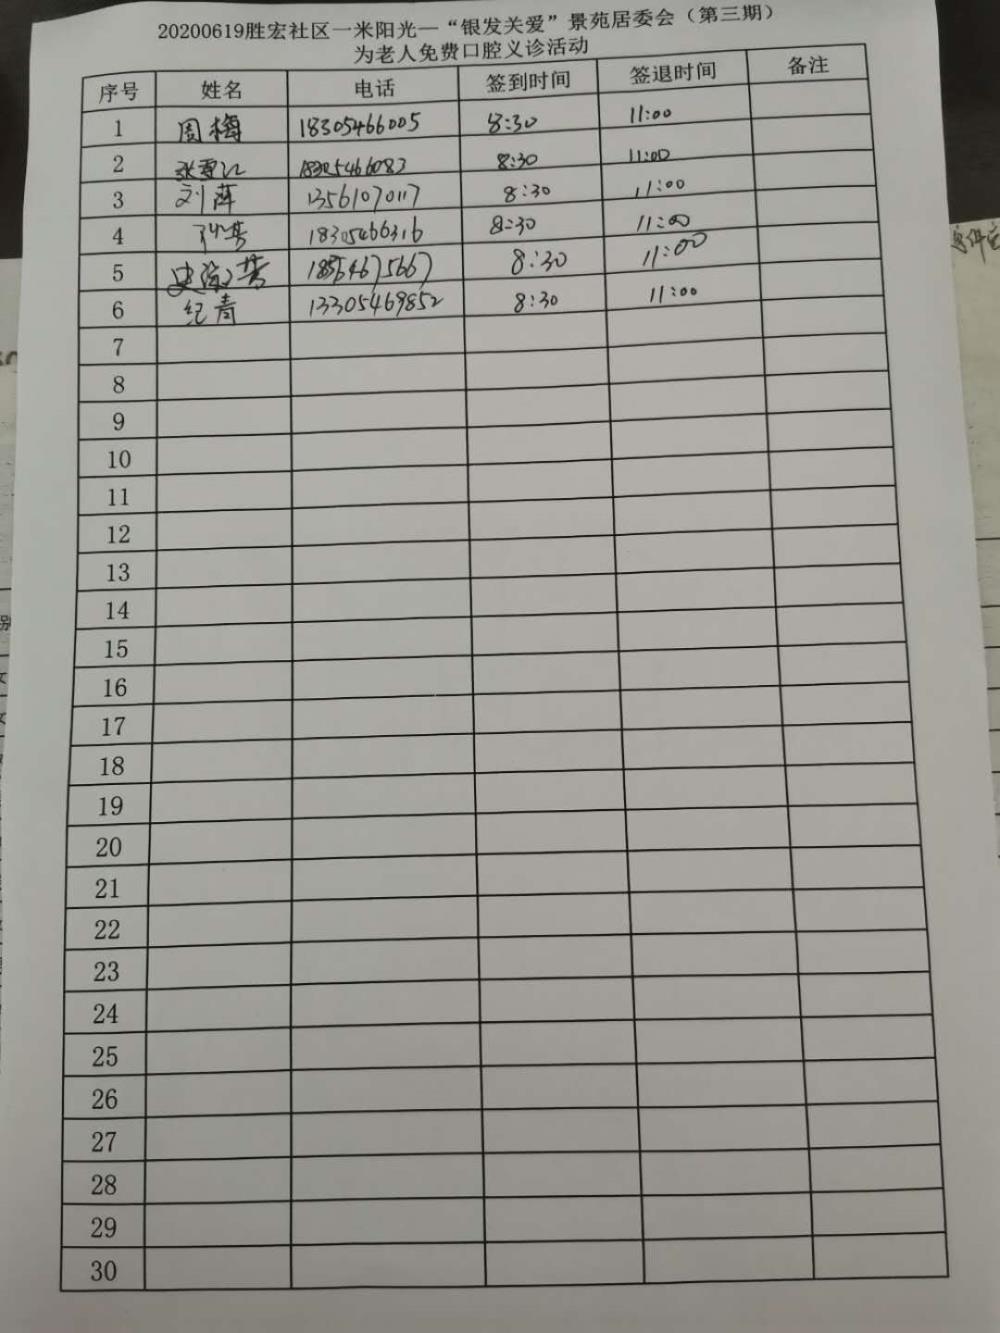 20200619胜宏社区一米阳光—“银发关爱”景苑居委会（第三期）
为老人免费口腔义诊活动
序号 姓名 电话 签到时间 签退时间 备注
1 周梅 18305466005 8:30 11:00
2 18305466083 8:30 11:00
3 刘萍 13561070117 8:30 11:00
4 18305466316 8:30 11:00
5 8:30 11:00
6 纪青 13305469852 8:30 11:00
7
8
9
10
11
12
13
14
15
16
17
18
19
20
21
22
23
24
25
26
27
28
29
30